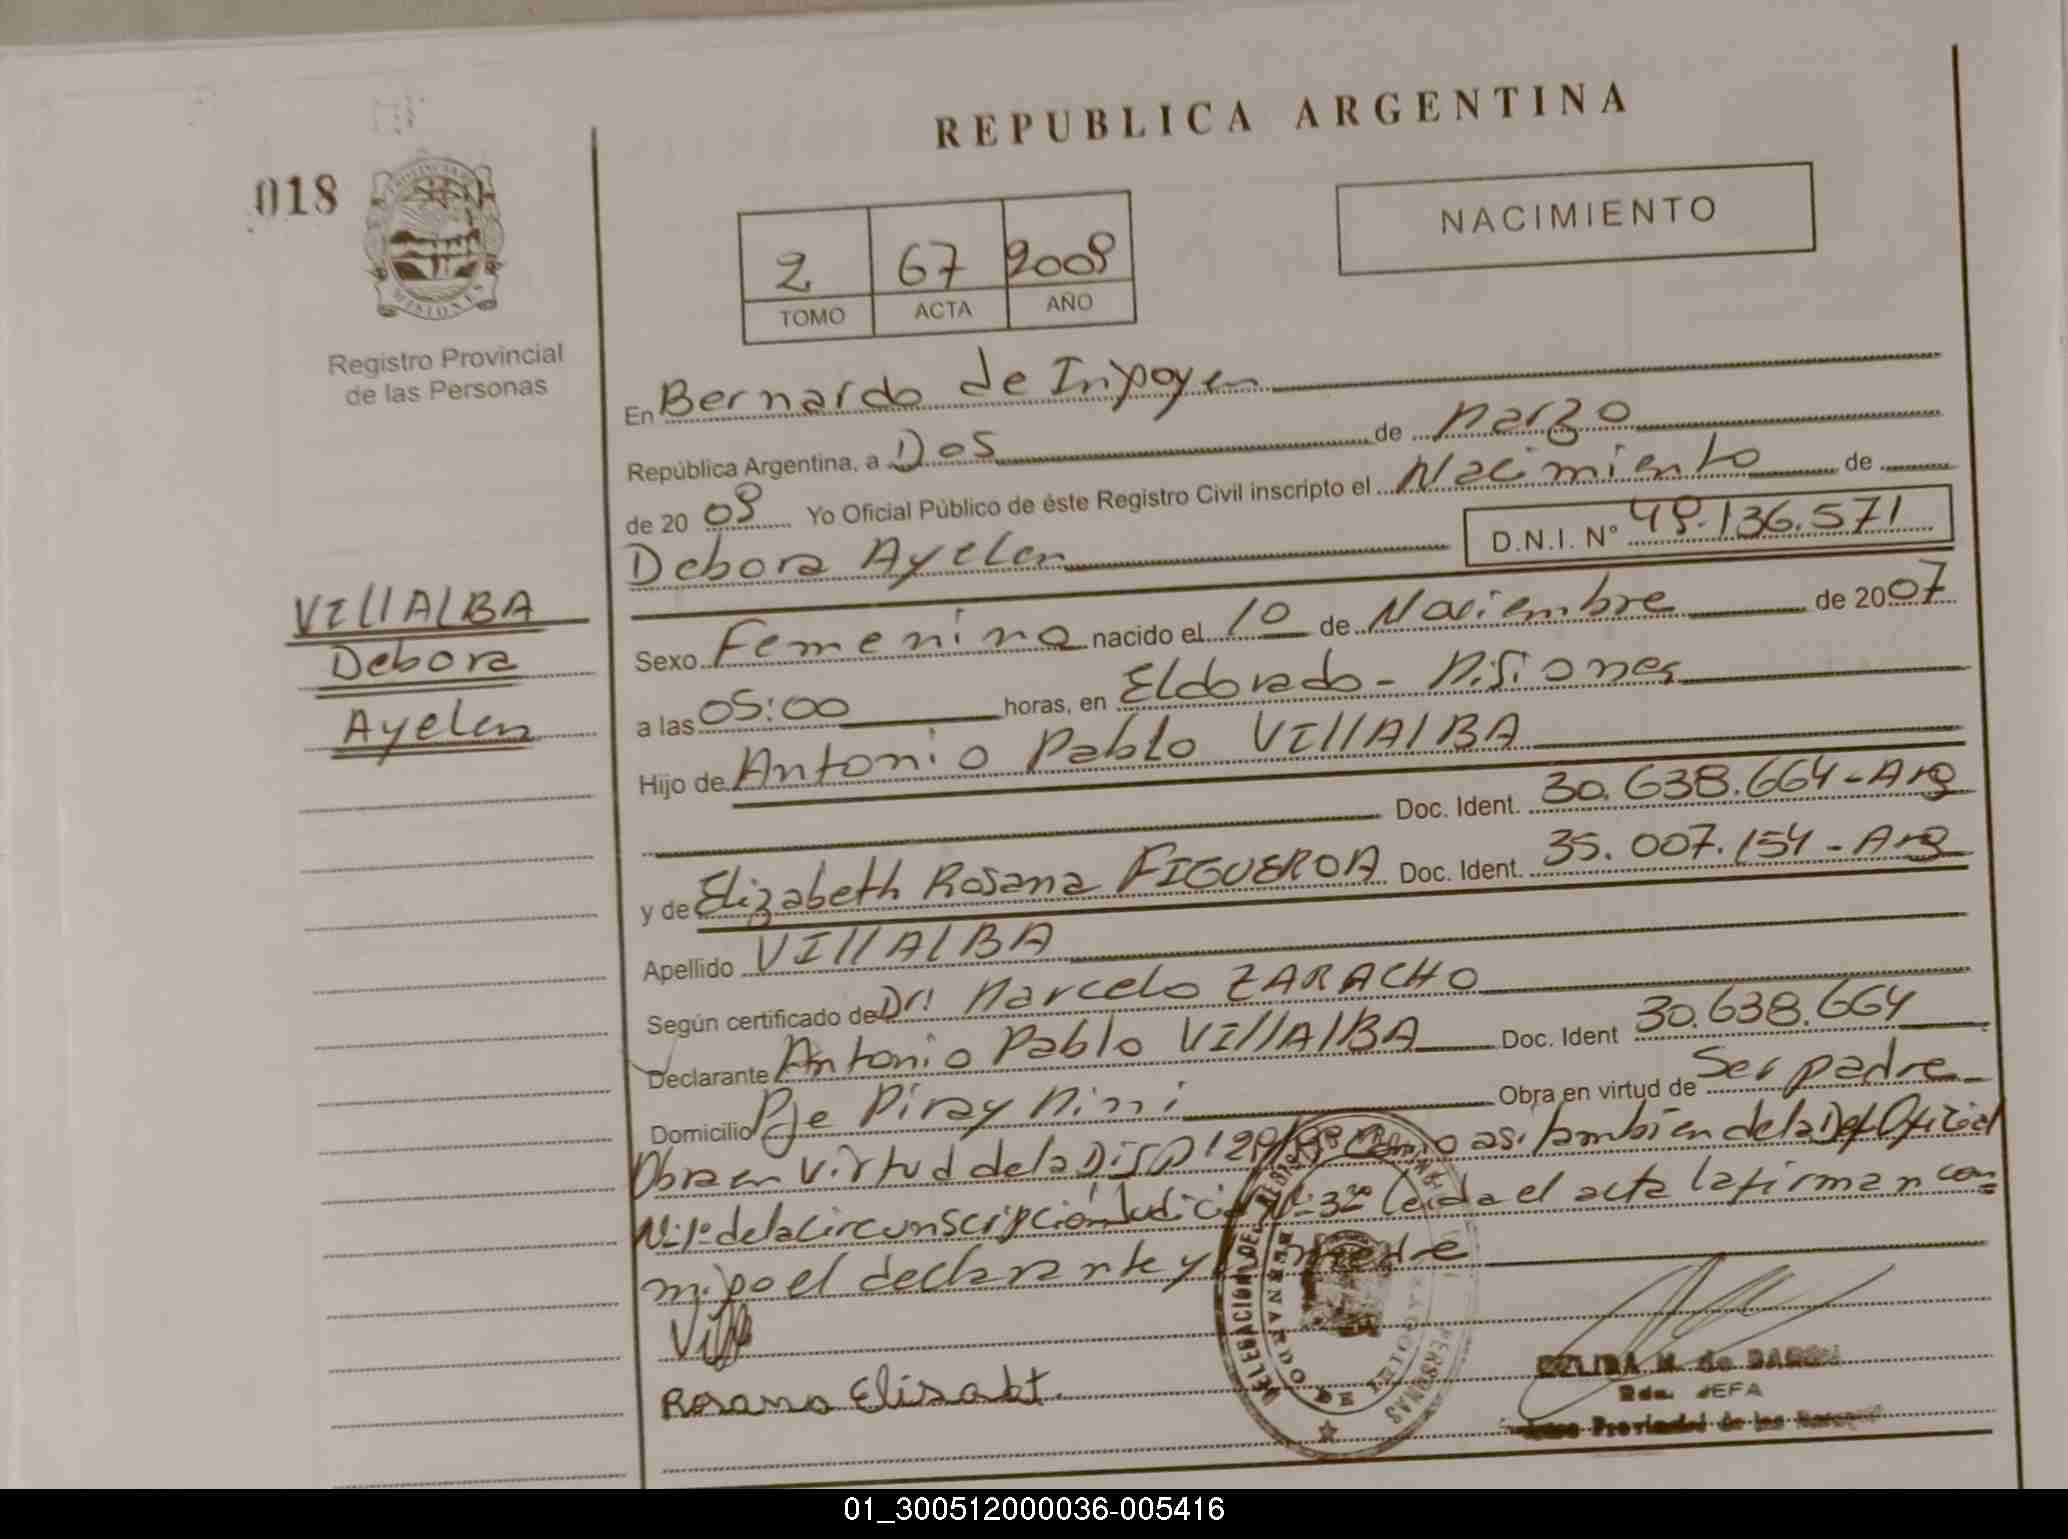 REPUBLICA ARGENTINA
018
NACIMIENTO
2 67 2008
TOMO ACTA AÑO
Registro Provincial
de las Personas
En Bernardo de Irigoyen
República Argentina, a Dos de Marzo
de 2008 Yo Oficial Público de éste Registro Civil inscripto el Nacimiento de
Debora Ayelen D.N.I. Nº 48.136.571
VIllAlBA
Debora
Ayelen
Sexo Femenino nacido el 10 de Noviembre de 2007
a las 05:00 horas, en Eldorado - Misiones
Hijo de Antonio Pablo VIllAlBA
Doc. Ident. 30.638.664 - Arg
y de Elizabeth Rosana FIGUEROA Doc. Ident. 35.007.154 - Arg
Apellido VIllAlBA
Según certificado de Dr: Marcelo ZARACHO
Declarante Antonio Pablo VIllAlBA Doc. Ident 30.638.664
Domicilio Pje Piray Mini Obra en virtud de Ser padre
Obra en virtud de la Disp como asi tambien de la Def Oficial
Nº 1º de la Circunscripción Judicial Nº 3ª leida el acta la firman con
migo el declarante y la madre
Rosana Elisabt.
DELEGACION DEL
PERSONAS
BERNARDO DE IRIGOYEN
MISIONES
CELIDA M. de
2da. JEFA
Provincial de las
01_300512000036-005416